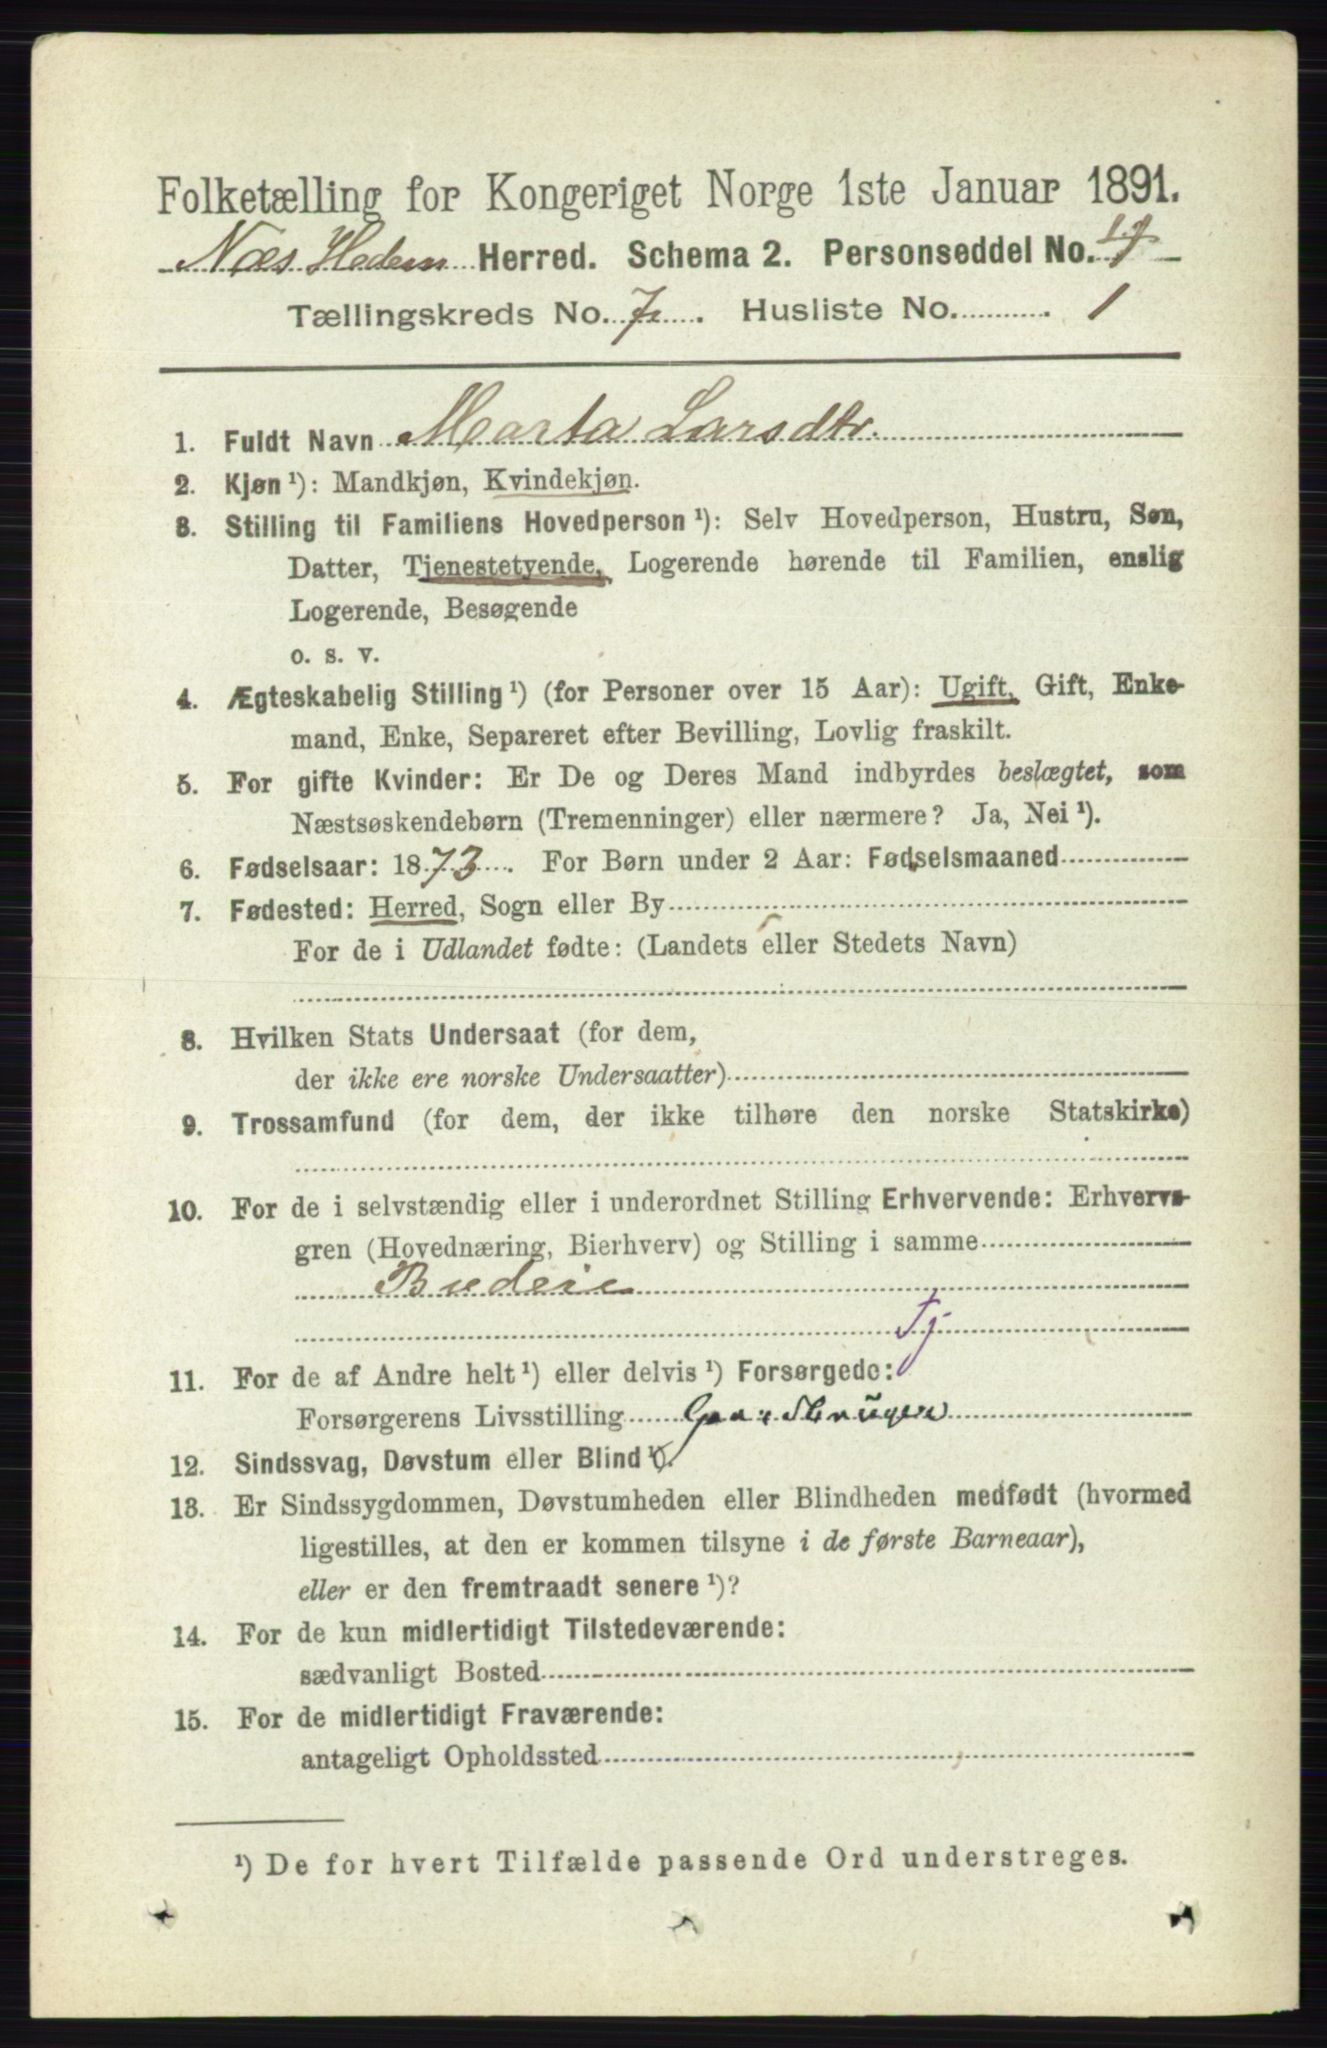 Folketælling for Kongeriget Norge 1ste Januar 1891.
Næs Hedem Herred. Schema 2. Personseddel No. 17
Tællingskreds No. 7. Husliste No. 1
1. Fuldt Navn Marta Larsdtr.
2. Kjøn ¹): Mandkjøn, Kvindekjøn.
3. Stilling til Familiens Hovedperson ¹): Selv Hovedperson, Hustru, Søn,
Datter, Tjenestetyende, Logerende hørende til Familien, enslig
Logerende, Besøgende
o. s. v.
4. Ægteskabelig Stilling ¹) (for Personer over 15 Aar): Ugift, Gift, Enke-
mand, Enke, Separeret efter Bevilling, Lovlig fraskilt.
5. For gifte Kvinder: Er De og Deres Mand indbyrdes beslægtet, som
Næstsøskendebørn (Tremenninger) eller nærmere? Ja, Nei ¹).
6. Fødselsaar: 1873. For Børn under 2 Aar: Fødselsmaaned
7. Fødested: Herred, Sogn eller By
For de i Udlandet fødte: (Landets eller Stedets Navn)
8. Hvilken Stats Undersaat (for dem,
der ikke ere norske Undersaatter)
9. Trossamfund (for dem, der ikke tilhøre den norske Statskirke)
10. For de i selvstændig eller i underordnet Stilling Erhvervende: Erhvervs-
gren (Hovednæring, Bierhverv) og Stilling i samme
Budeie
Tj
11. For de af Andre helt ¹) eller delvis ¹) Forsørgede:
Forsørgerens Livsstilling Gaardbruger
12. Sindssvag, Døvstum eller Blind ¹).
13. Er Sindssygdommen, Døvstumheden eller Blindheden medfødt (hvormed
ligestilles, at den er kommen tilsyne i de første Barneaar),
eller er den fremtraadt senere ¹)?
14. For de kun midlertidigt Tilstedeværende:
sædvanligt Bosted
15. For de midlertidigt Fraværende:
antageligt Opholdssted
¹) De for hvert Tilfælde passende Ord understreges.